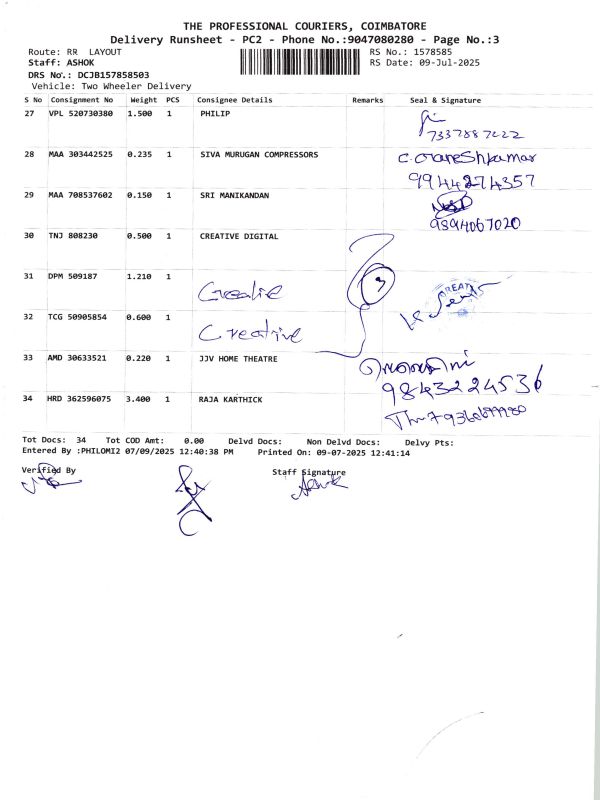 THE PROFESSIONAL COURIERS, COIMBATORE
Delivery Runsheet - PC2 - Phone No.:9047080280 - Page No.:3
Route: RR LAYOUT RS No.: 1578585
Staff: ASHOK RS Date: 09-Jul-2025
DRS No.: DCJB157858503
Vehicle: Two Wheeler Delivery
S No Consignment No Weight PCS Consignee Details Remarks Seal & Signature
27 VPL 520730380 1.500 1 PHILIP
28 MAA 303442525 0.235 1 SIVA MURUGAN COMPRESSORS
9944274357
29 MAA 708537602 0.150 1 SRI MANIKANDAN
9894067020
30 TNJ 808230 0.500 1 CREATIVE DIGITAL
31 DPM 509187 1.210 1 Creative 3
32 TCG 50905854 0.600 1 Creative
33 AMD 30633521 0.220 1 JJV HOME THEATRE
9843224536
34 HRD 362596075 3.400 1 RAJA KARTHICK
Tot Docs: 34 Tot COD Amt: 0.00 Delvd Docs: Non Delvd Docs: Delvy Pts:
Entered By :PHILOMI2 07/09/2025 12:40:38 PM Printed On: 09-07-2025 12:41:14
Verified By Staff Signature
Ashok